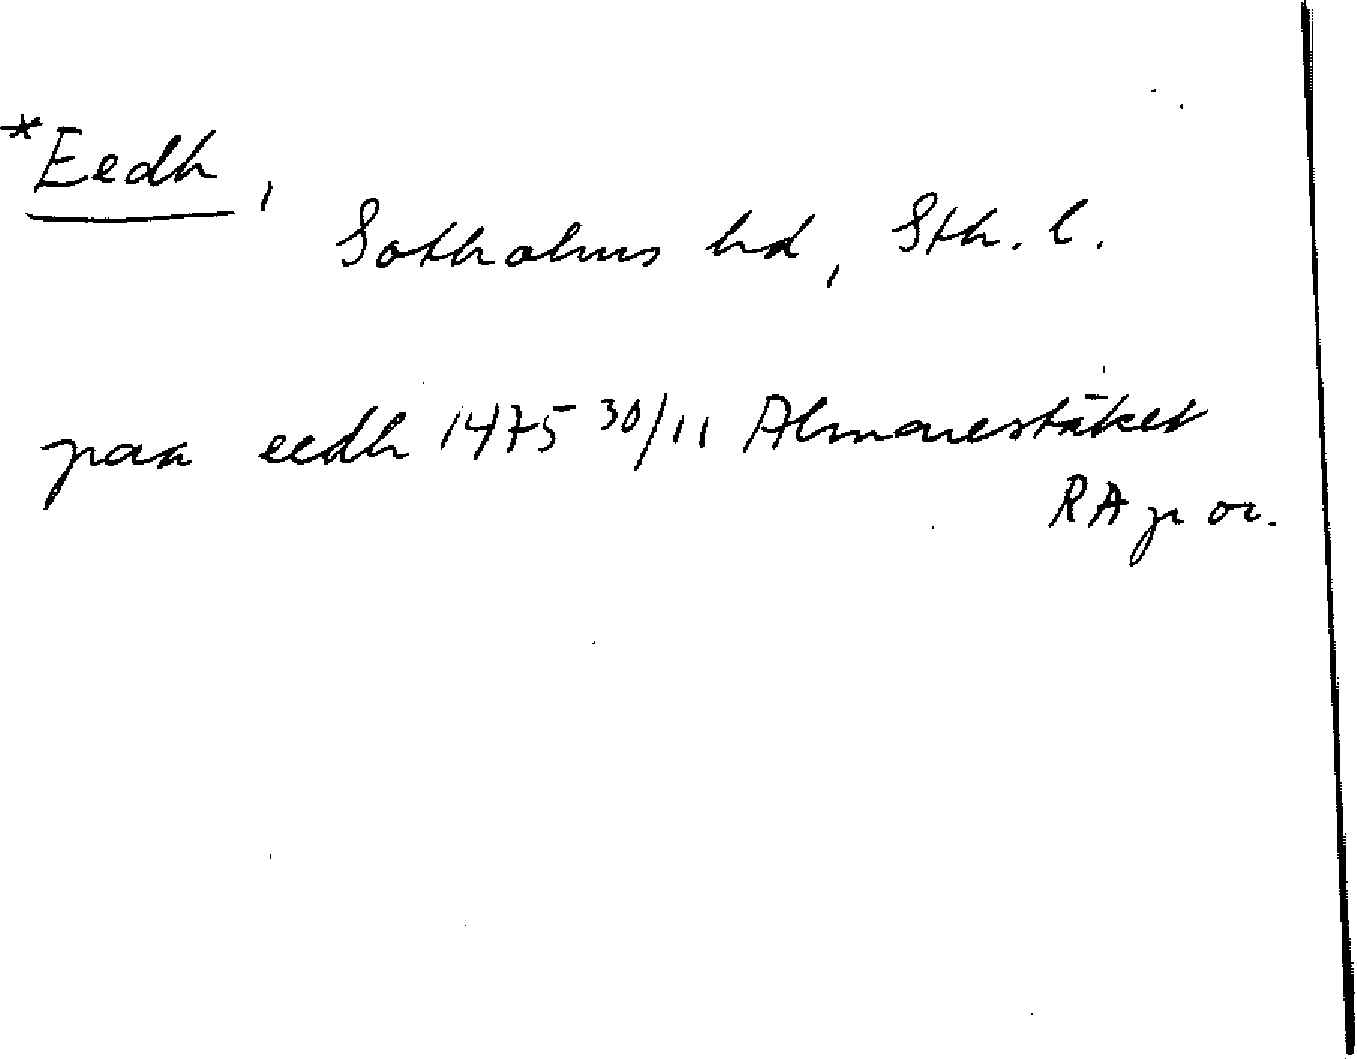 *Eedh,
Sotholms hd, Sth. l.
paa eedh 1475 30/11 Almarestäket
RA p or.